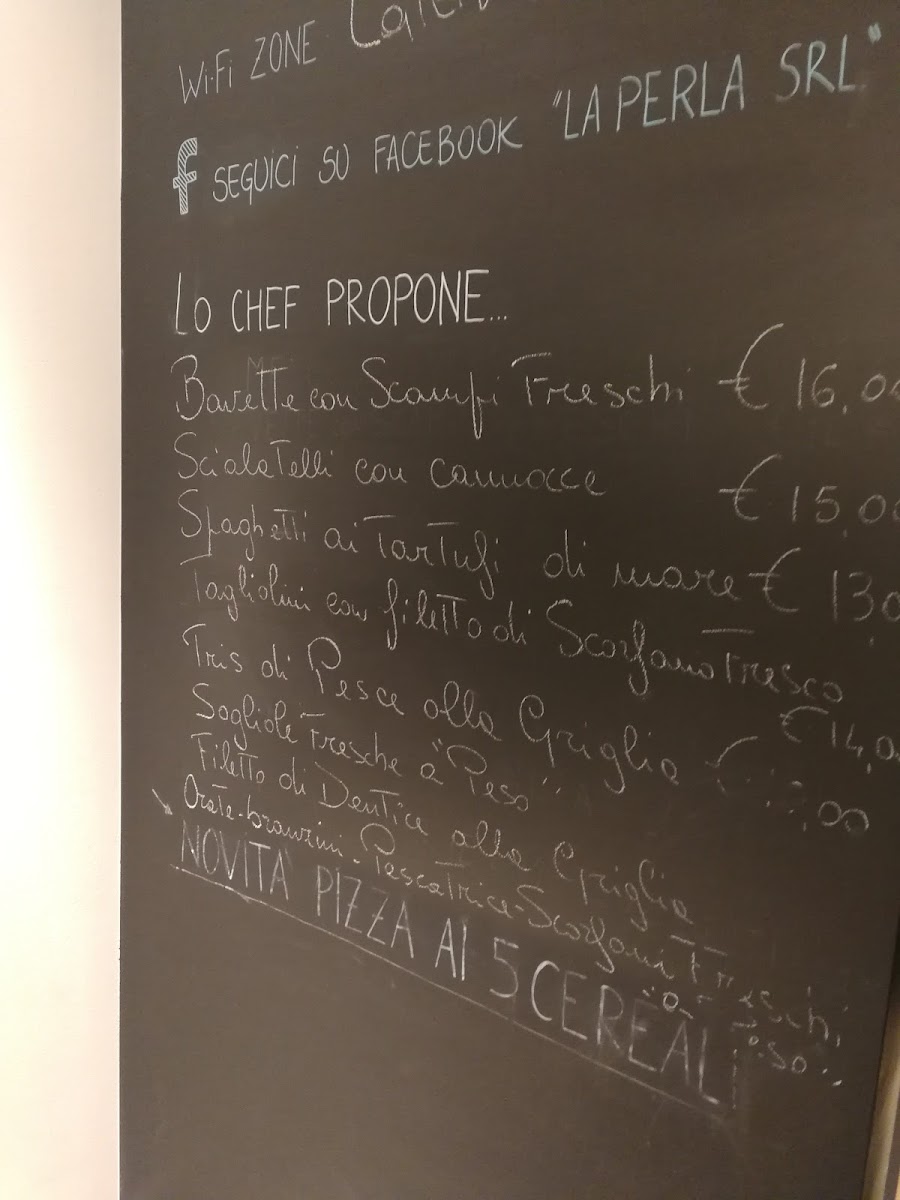 WI-FI ZONE
f SEGUICI SU FACEBOOK "LA PERLA SRL"
LO CHEF PROPONE...
Bavette con Scampi Freschi € 16,00
Scialatelli con cannocce € 15,00
Spaghetti ai Tartufi di mare € 13,0
Tagliolini con filetto di Scorfano Fresco
€ 14,0
Tris di Pesce alla Griglia € ,00
Sogliole Fresche a "Peso"
Filetto di Dentice alla Griglia
Orate-branzini-Pescatrice-Scorfani Freschi
NOVITÀ PIZZA AI 5 CEREALI